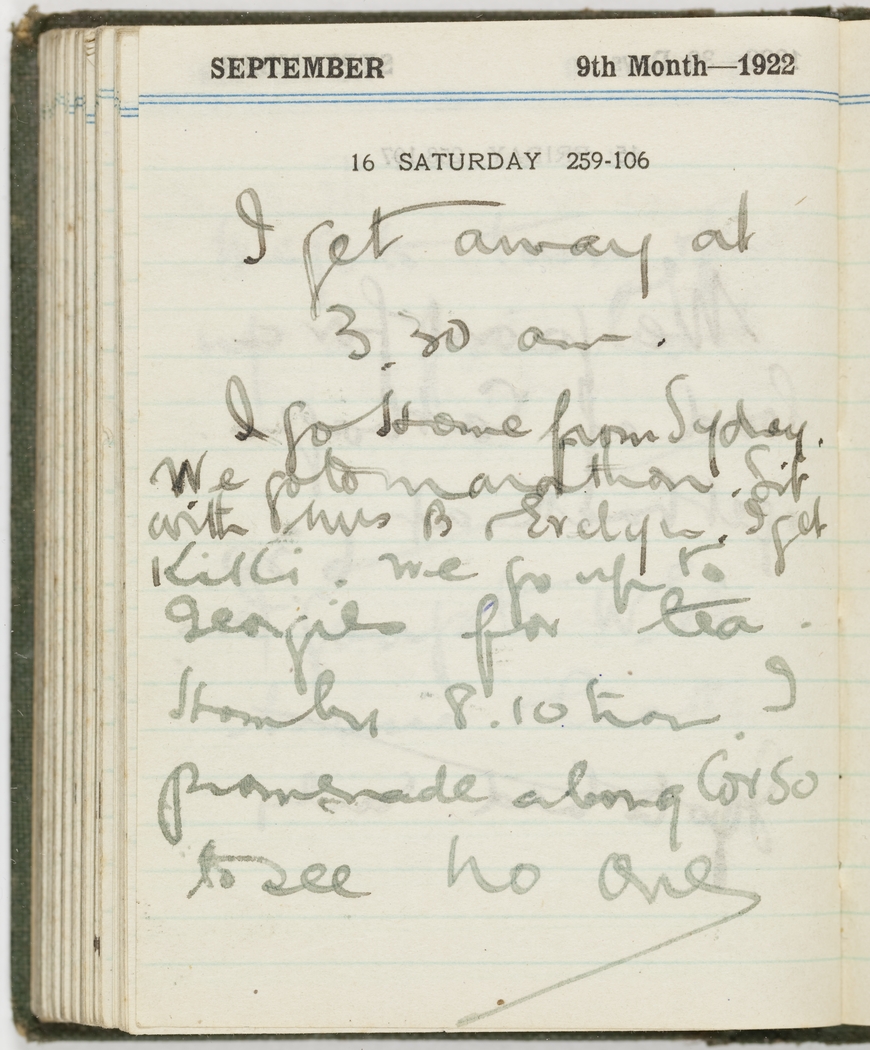 SEPTEMBER 9th Month—1922
16 SATURDAY 259-106
I get away at
3.30 am.
I go Home from Sydney.
We go to marathon. Sit
with Mrs B Evelyn. I get
Kikki. We go up to
Georgies for tea.
Home by 8.10 tram I
promenade along Corso
to see no one